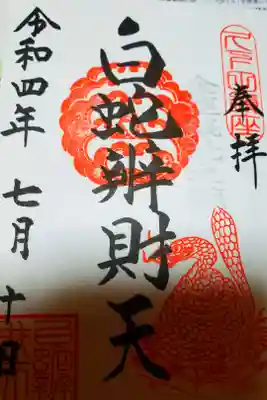 奉拝
白蛇辨財天
令和四年七月十日